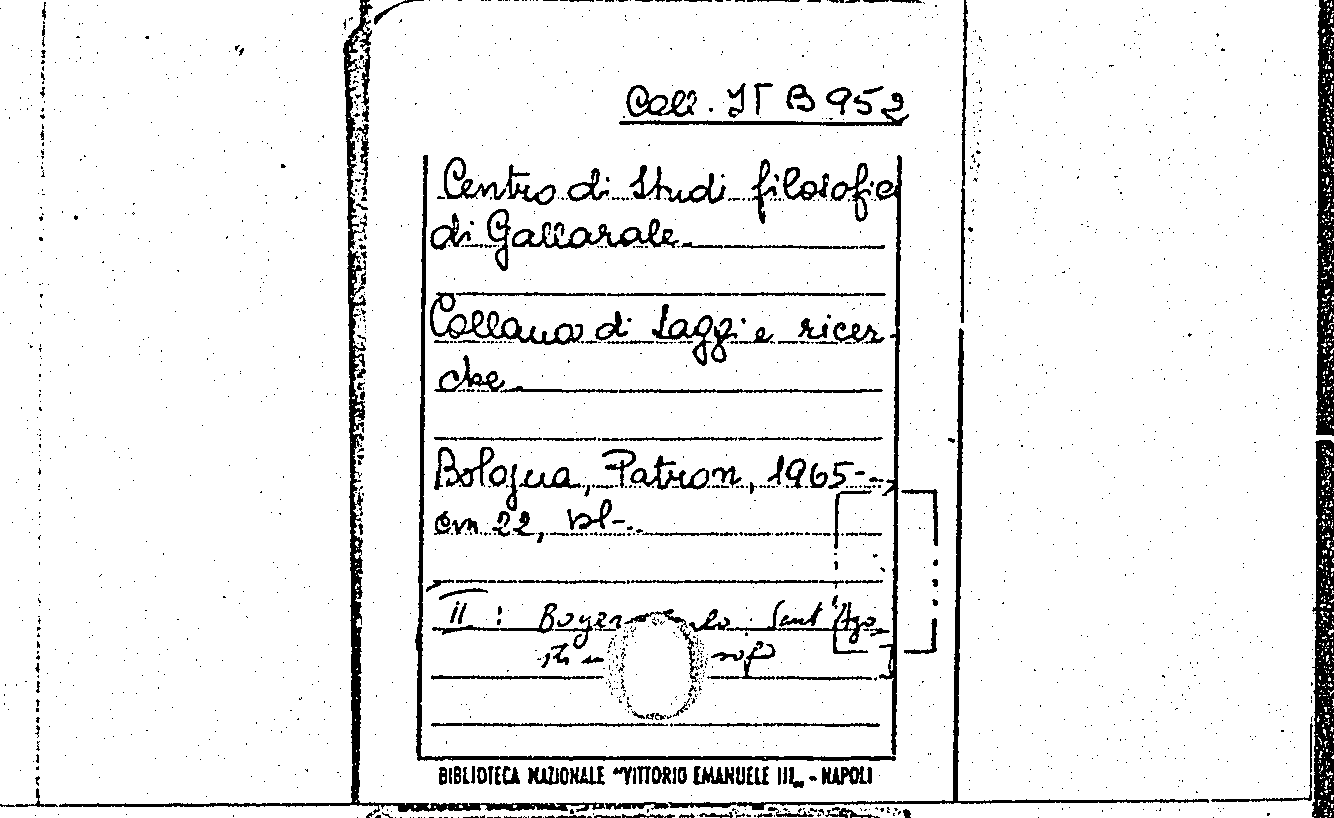 Coll. IT B 952
Centro di Studi filosofic
di Gallarate.
Collana di Saggi e ricer-
che.
Bologna, Patron, 1965-
cm 22, vl-.
II : Boyer Sant'Ago
BIBLIOTECA NAZIONALE "VITTORIO EMANUELE III„ - NAPOLI